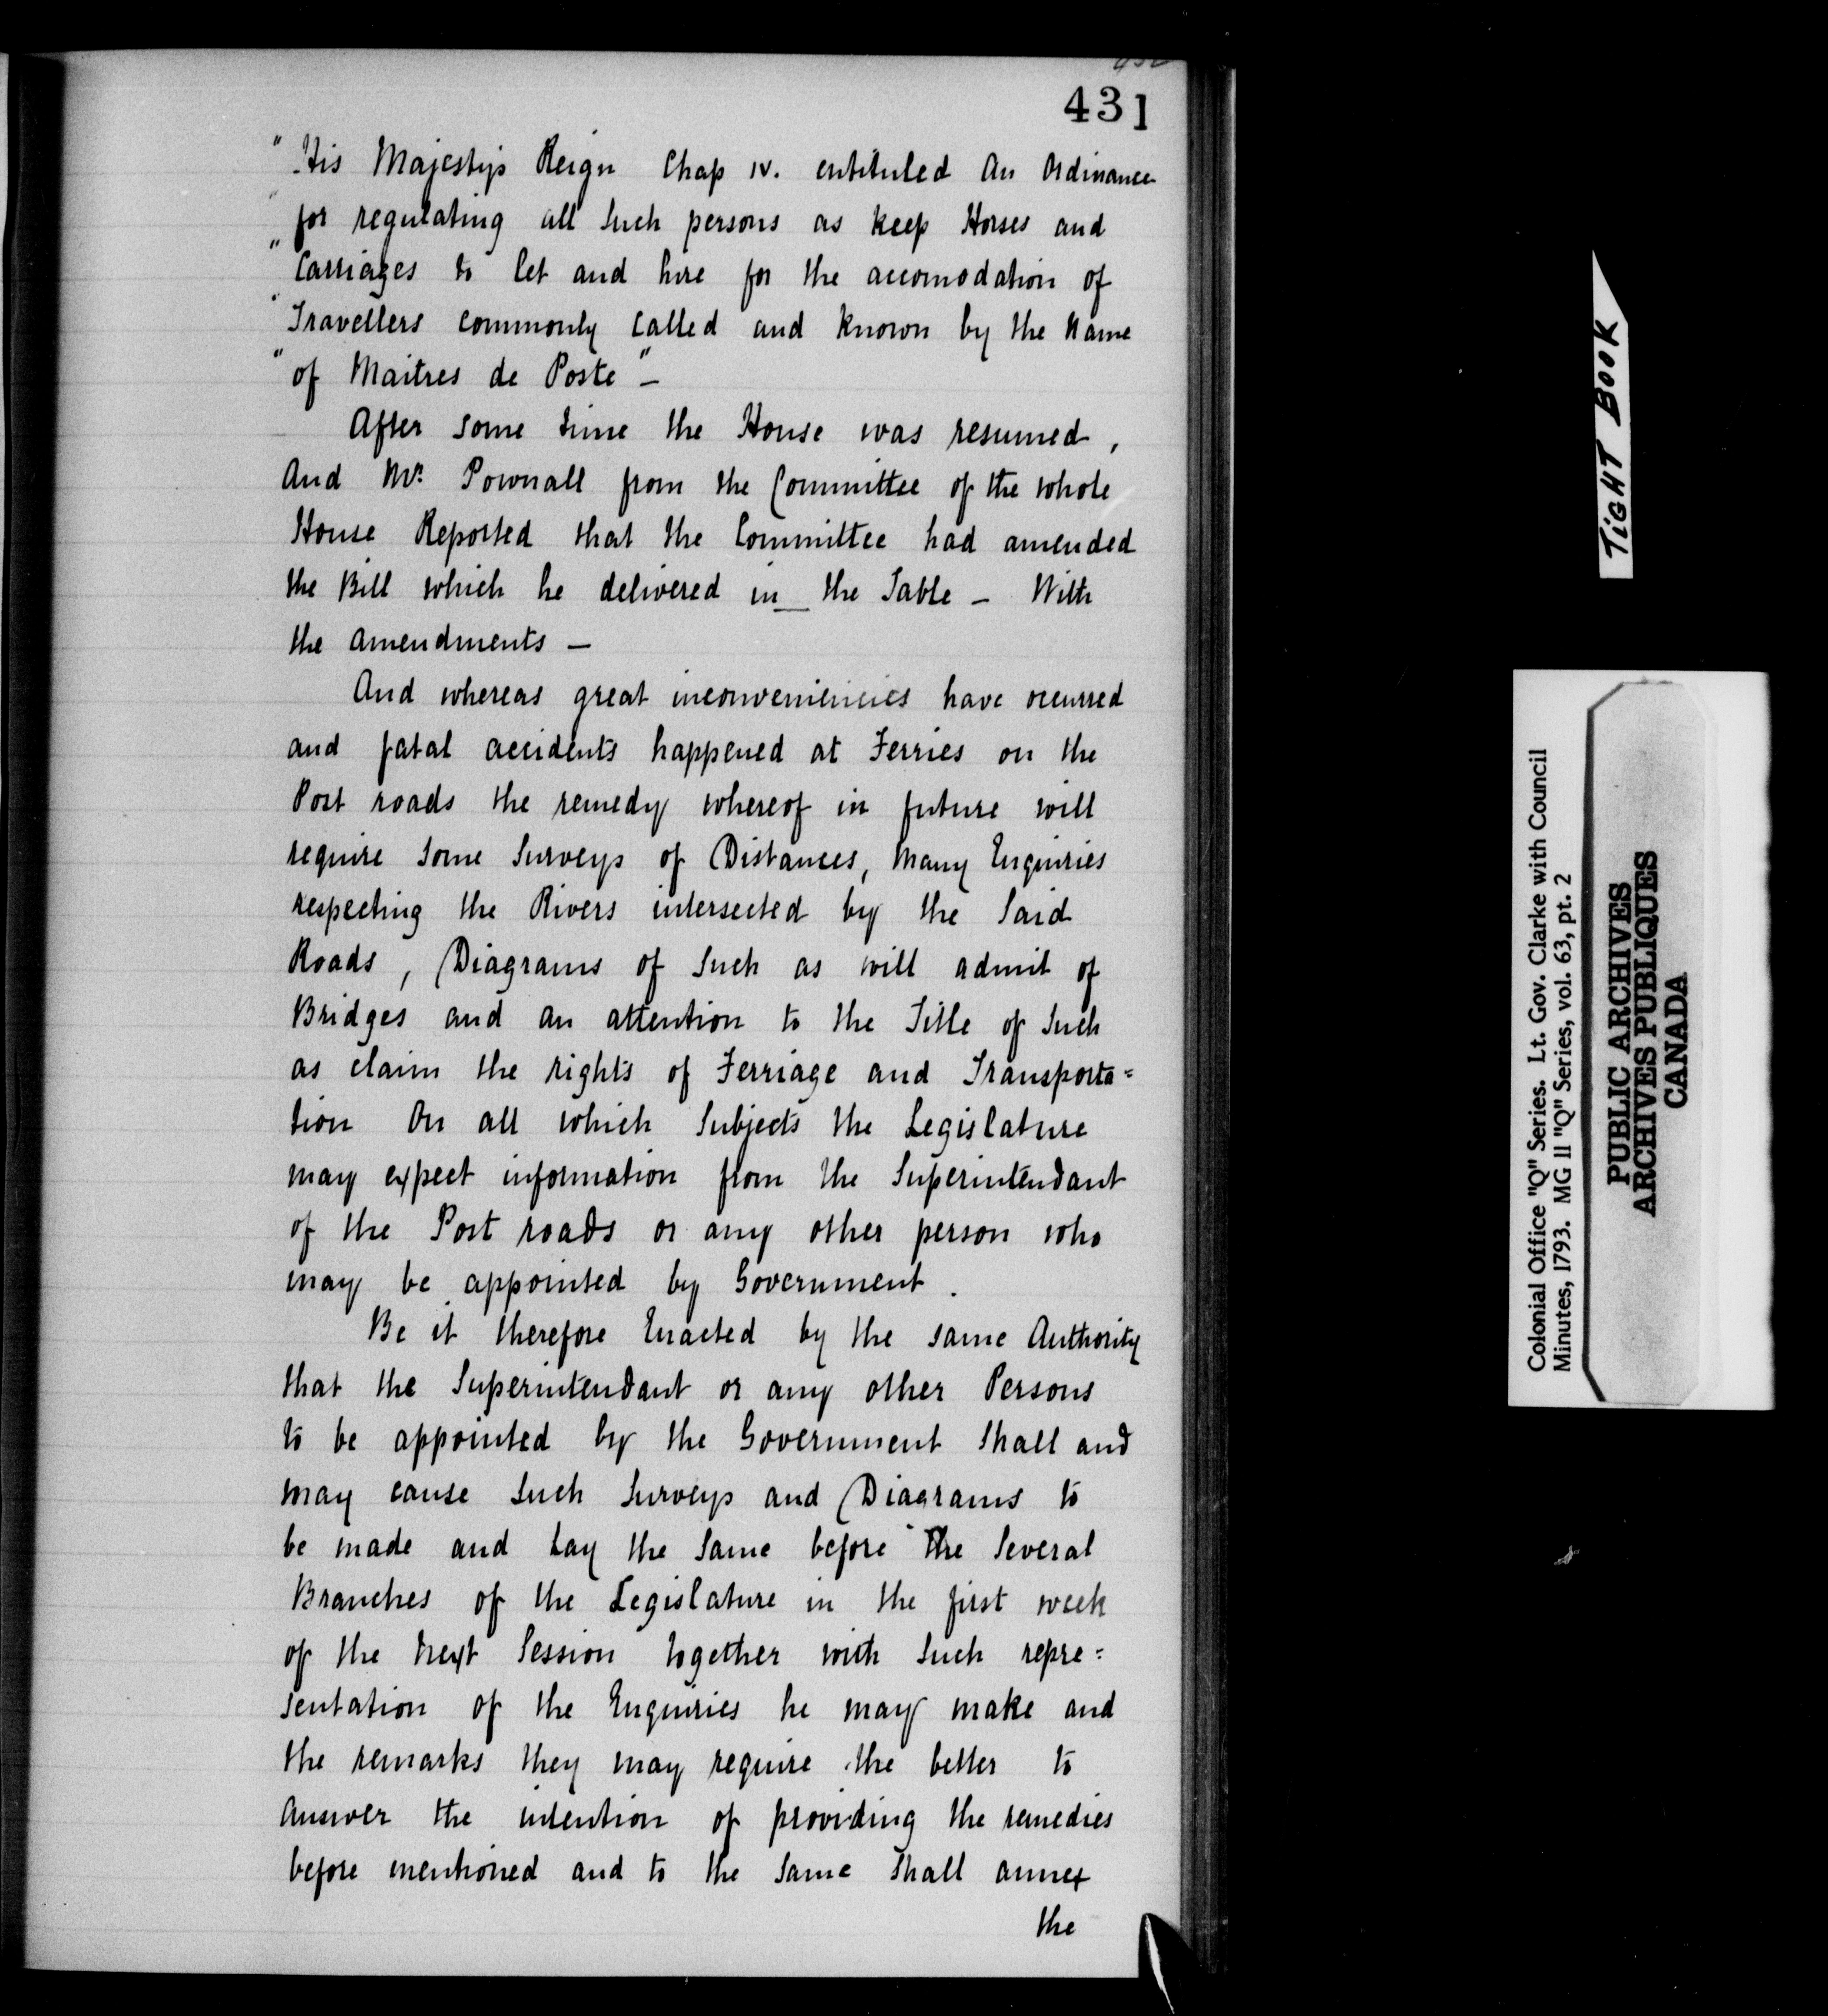 431
" His Majesty's Reign Chap IV. entituled An Ordinance
" for regulating all such persons as keep Horses and
" Carriages to let and hire for the accomodation of
" Travellers commonly called and known by the Name
" of Maitres de Poste " —
After some time the House was resumed,
And Mr. Pownall from the Committee of the whole
House Reported that the Committee had amended
the Bill which he delivered in _ the Table — With
the amendments —
And whereas great inconveniencies have occurred
and fatal accidents happened at Ferries on the
Post roads the remedy whereof in future will
require some Surveys of Distances, many Enquiries
respecting the Rivers intersected by the said
Roads, Diagrams of such as will admit of
Bridges and an attention to the Title of such
as claim the rights of Ferriage and Transporta=
tion On all which Subjects the Legislature
may expect information from the Superintendant
of the Post roads or any other person who
may be appointed by Government.
Be it therefore Enacted by the same Authority
that the Superintendant or any other Persons
to be appointed by the Government shall and
may cause such Surveys and Diagrams to
be made and Lay the same before The several
Branches of the Legislature in the first week
of the next Session together with such repre=
sentation of the Enquiries he may make and
the remarks they may require the better to
answer the intention of providing the remedies
before mentioned and to the same shall annex
the
TIGHT BOOK
Colonial Office "Q" Series. Lt. Gov. Clarke with Council
Minutes, 1793. MG 11 "Q" Series, vol. 63, pt. 2
PUBLIC ARCHIVES
ARCHIVES PUBLIQUES
CANADA